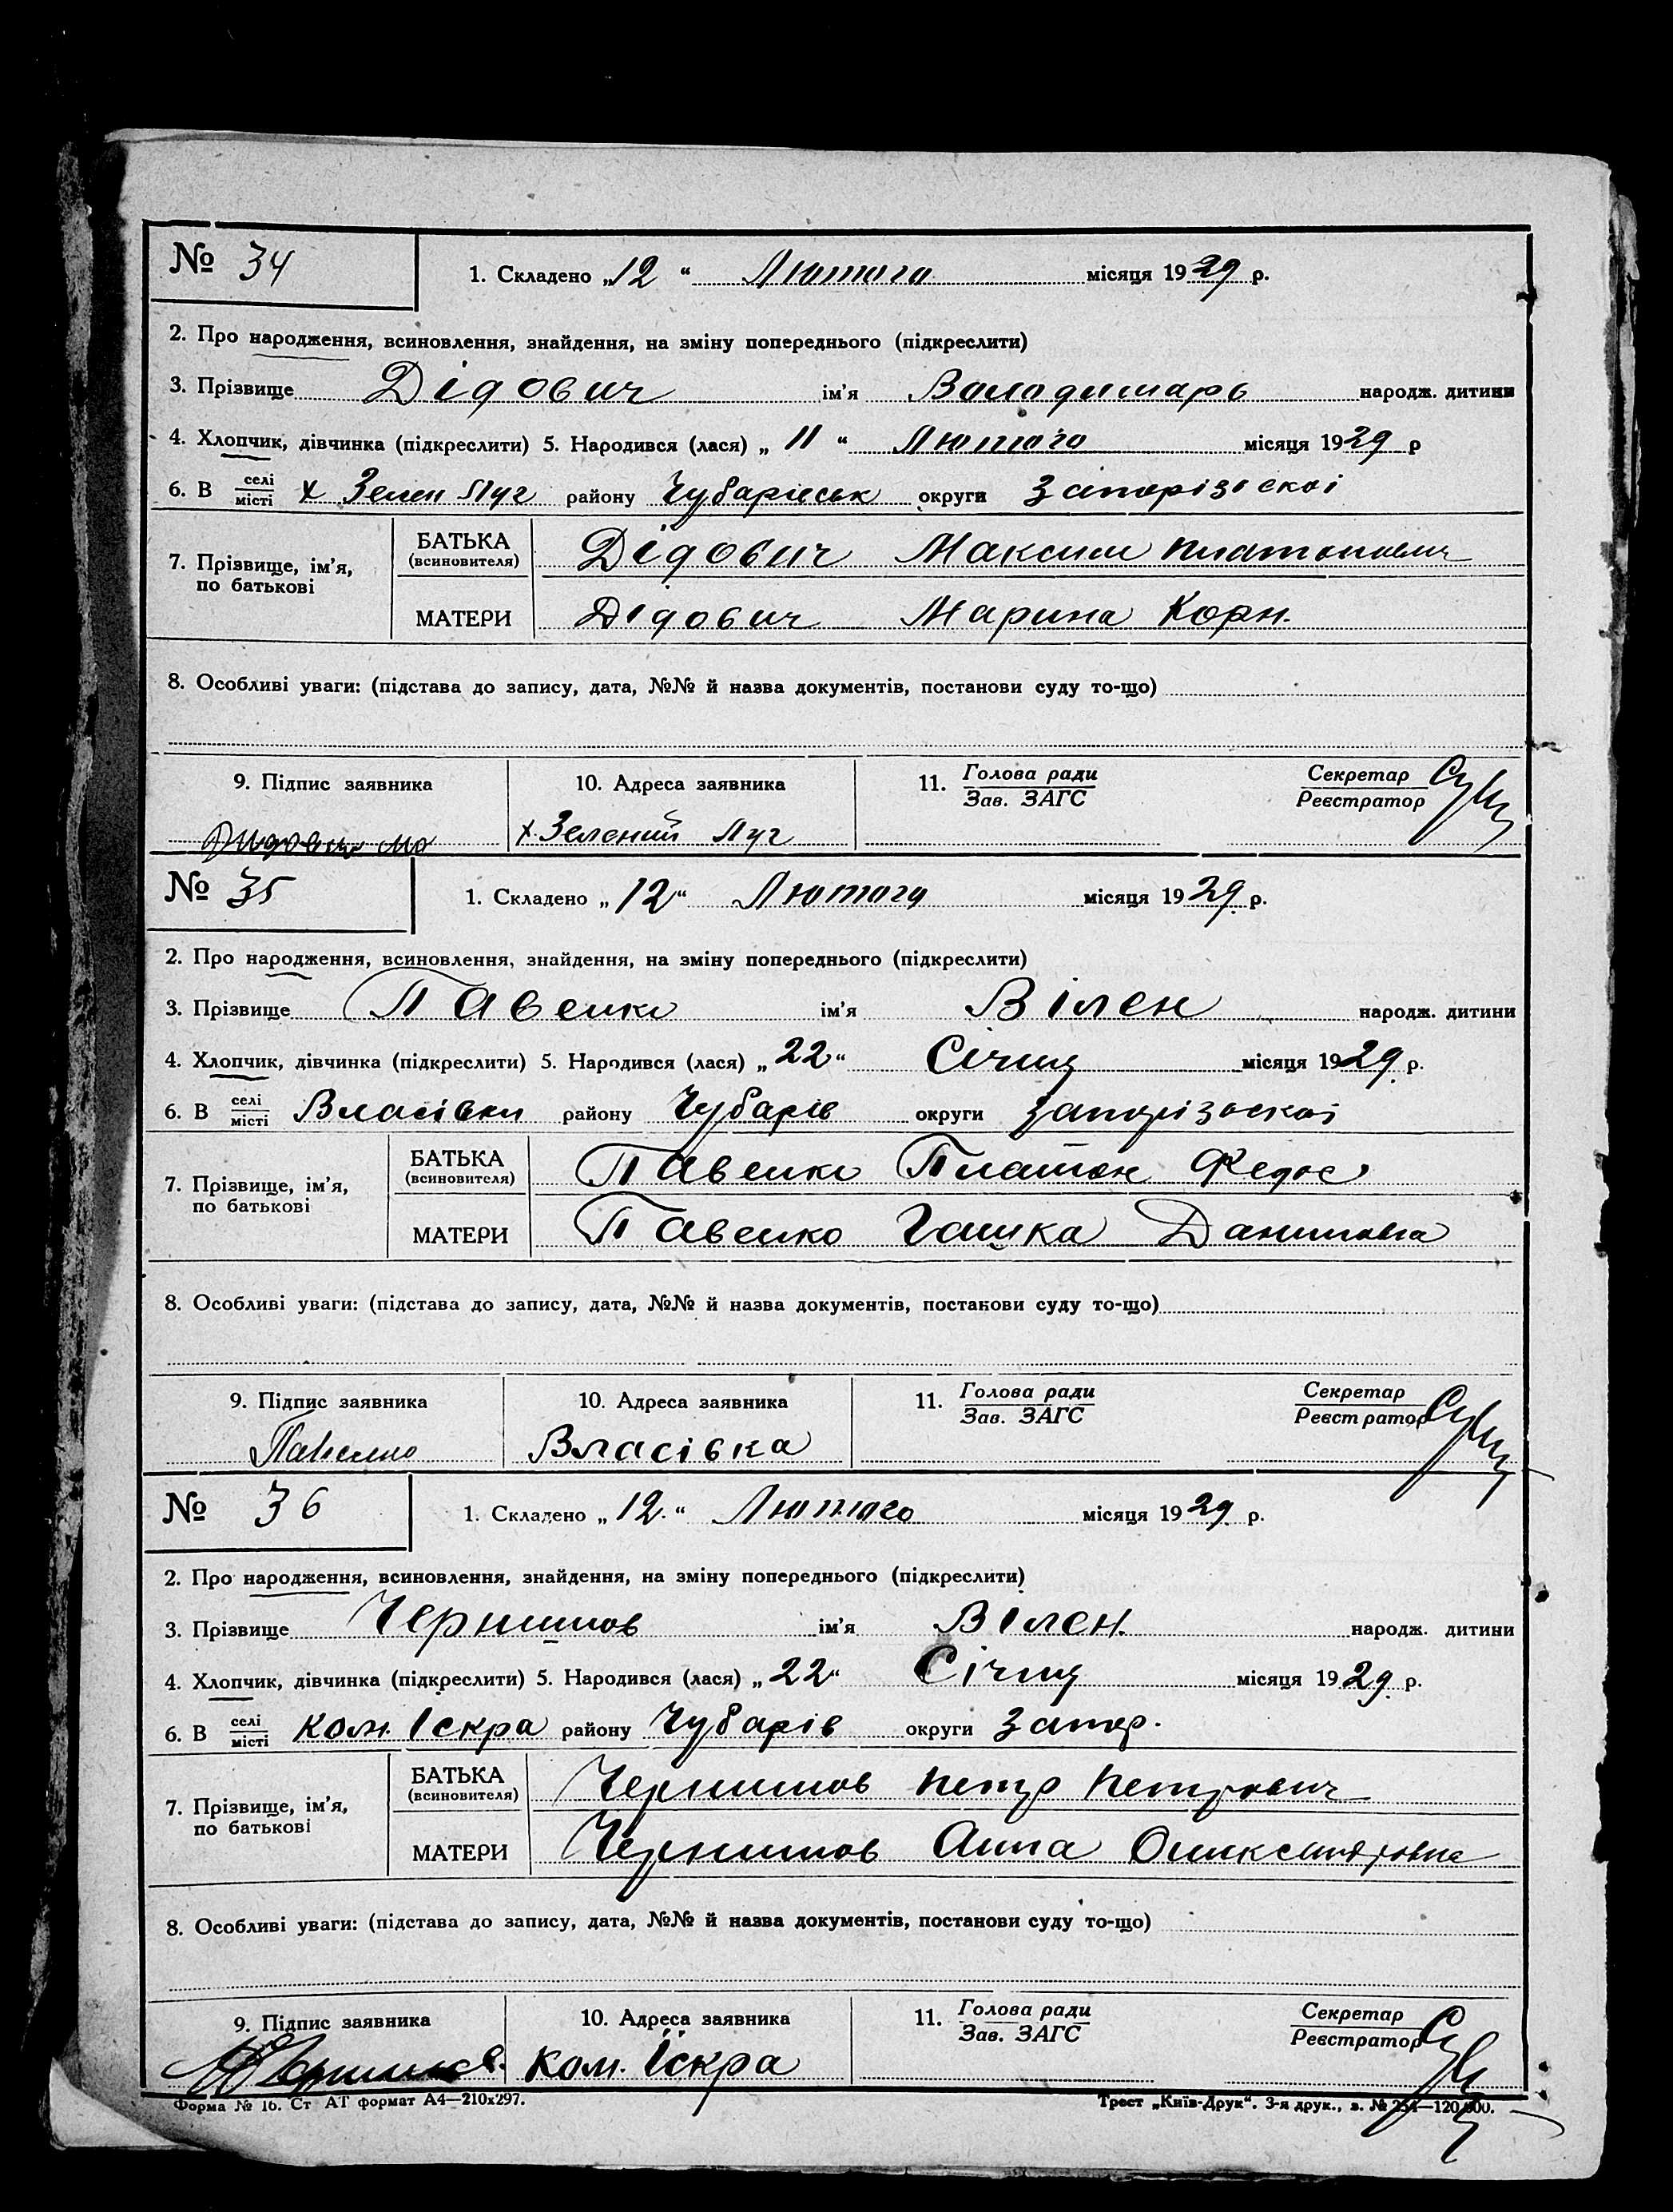 № 34 1. Складено „12“ Лютого місяця 1929 р.
2. Про народження, всиновлення, знайдення, на зміну попереднього (підкреслити)
3. Прізвище Дідович ім'я Володимарь народж. дитини
4. Хлопчик, дівчинка (підкреслити) 5. Народився (лася) „11“ Лютого місяця 1929 р
6. В селі/місті х Зелен Луг району Чубарівськ округи Запорізської
7. Прізвище, ім'я, по батькові
БАТЬКА (всиновителя) Дідович Максим Платонович
МАТЕРИ Дідович Марина Корн.
8. Особливі уваги: (підстава до запису, дата, №№ й назва документів, постанови суду то-що)
9. Підпис заявника 10. Адреса заявника 11. Голова ради/Зав. ЗАГС Секретар/Реєстратор
х. Зелений Луг
№ 35 1. Складено „12“ Лютого місяця 1929 р.
2. Про народження, всиновлення, знайдення, на зміну попереднього (підкреслити)
3. Прізвище ім'я Вілен народж. дитини
4. Хлопчик, дівчинка (підкреслити) 5. Народився (лася) „22“ Січня місяця 1929 р.
6. В селі/місті Власівки району Чубарів округи Запорізської
7. Прізвище, ім'я, по батькові
БАТЬКА (всиновителя) Платон Федос
МАТЕРИ Гашка Даниловна
8. Особливі уваги: (підстава до запису, дата, №№ й назва документів, постанови суду то-що)
9. Підпис заявника 10. Адреса заявника 11. Голова ради/Зав. ЗАГС Секретар/Реєстратор
Власівка
№ 36 1. Складено „12.“ Лютого місяця 1929 р.
2. Про народження, всиновлення, знайдення, на зміну попереднього (підкреслити)
3. Прізвище Чернишов ім'я Вілен. народж. дитини
4. Хлопчик, дівчинка (підкреслити) 5. Народився (лася) „22“ Січня місяця 1929 р.
6. В селі/місті Ком. Іскра району Чубарів округи Запор.
7. Прізвище, ім'я, по батькові
БАТЬКА (всиновителя) Чернишов Петр Петрович
МАТЕРИ Чернишов Анна Олександровна
8. Особливі уваги: (підстава до запису, дата, №№ й назва документів, постанови суду то-що)
9. Підпис заявника 10. Адреса заявника 11. Голова ради/Зав. ЗАГС Секретар/Реєстратор
Ком. Іскра
Форма № 16. Ст АТ формат А4—210х297. Трест „Київ-Друк“. 3-я друк., з. №